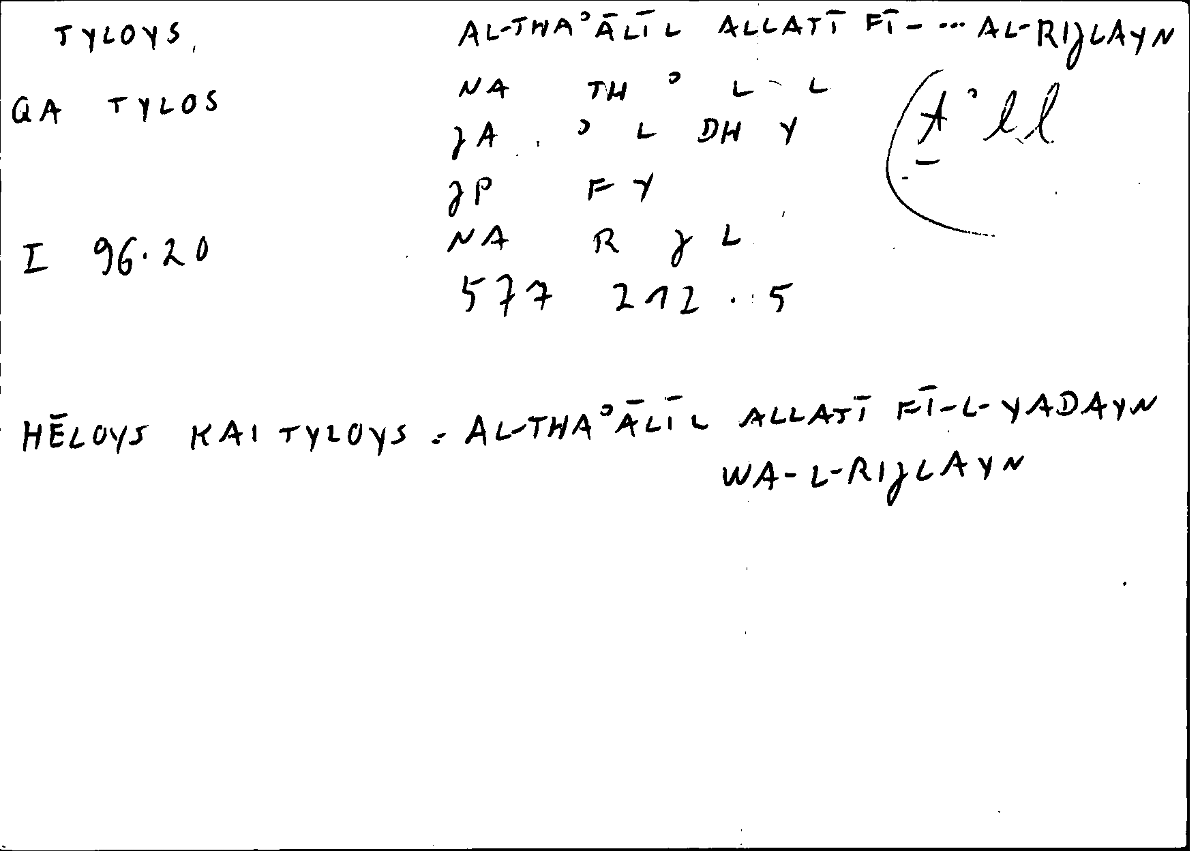 TYLOYS, AL-THAʾĀLĪL ALLATĪ FĪ- ... AL-RIJLAYN
QA TYLOS NA TH ʾ L L
JA ʾ L DH Y (ṯʾll
JP F Y
I 96.20 NA R J L
577 212.5
HĒLOYS KAI TYLOYS = AL-THAʾĀLĪL ALLATĪ FĪ-L-YADAYN
WA-L-RIJLAYN